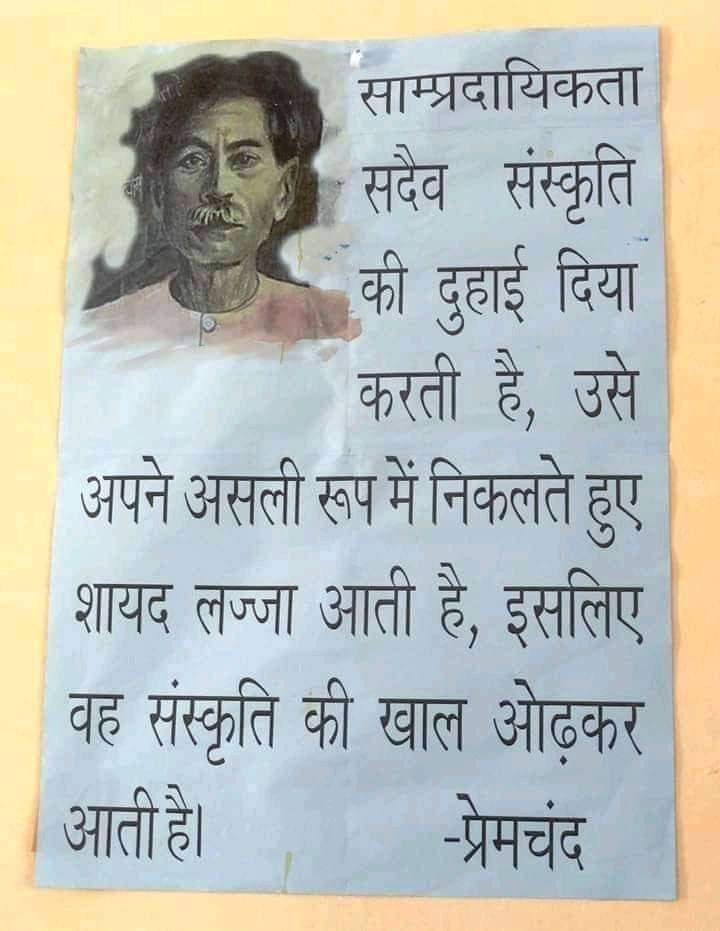 साम्प्रदायिकता
सदैव संस्कृति
की दुहाई दिया
करती है, उसे
अपने असली रूप में निकलते हुए
शायद लज्जा आती है, इसलिए
वह संस्कृति की खाल ओढ़कर
आती है।
-प्रेमचंद